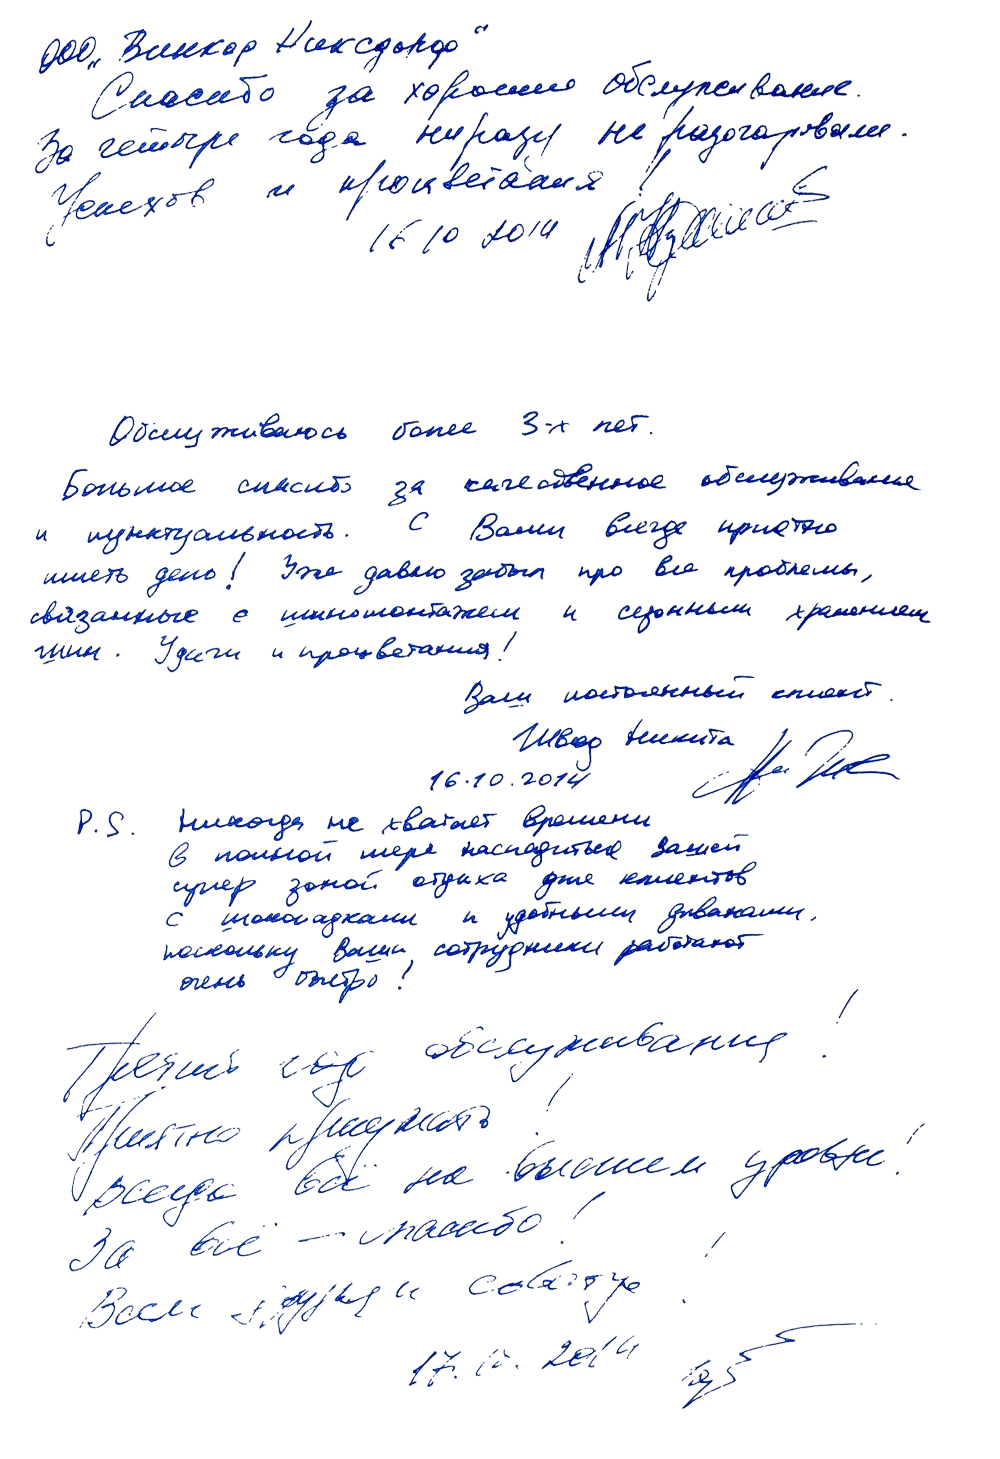 ООО „Винкор Никсдорф“
Спасибо за хорошее обслуживание.
За четыре года ни разу не разочаровали.
Успехов и процветания!
16 10 2014
Обслуживаюсь более 3-х лет.
Большое спасибо за качественное обслуживание
и пунктуальность. С Вами всегда приятно
иметь дело! Уже давно забыл про все проблемы,
связанные с шиномонтажем и сезонным хранением
шин. Удачи и процветания!
Ваш постоянный клиент.
Швод Никита
16.10.2014
P.S. Никогда не хватает времени
в полной мере насладиться Вашей
супер зоной отдыха для клиентов
с шоколадками и удобными диванами,
поскольку Ваши сотрудники работают
очень быстро!
Третий год обслуживания!
Приятно приезжать!
Всегда всё на высшем уровне!
За всё — спасибо!
Всем друзьям советую!
17.10.2014